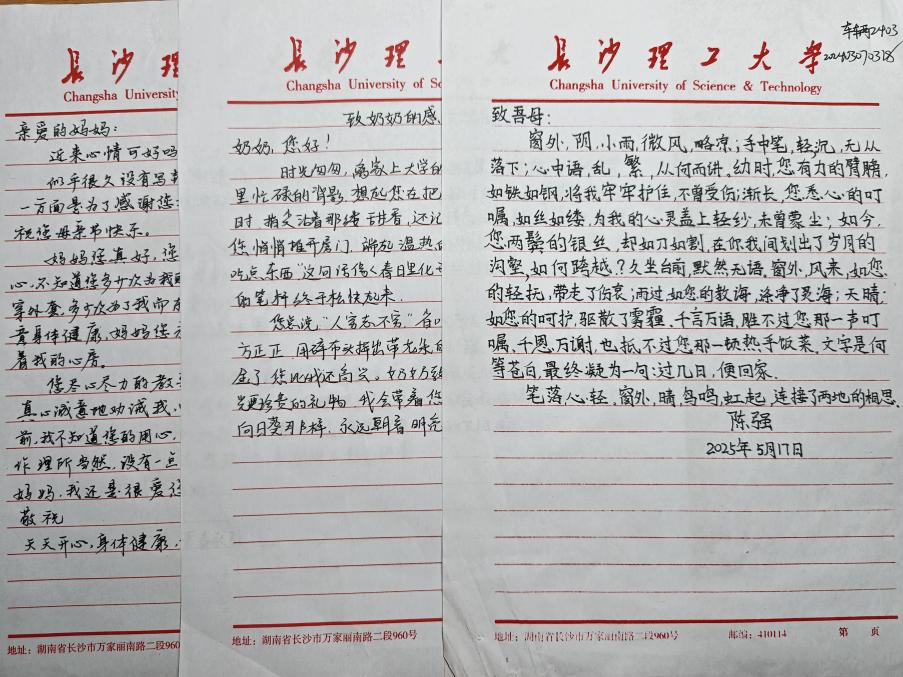 長沙理
Changsha University
亲爱的妈妈：
近来心情可好吗
似乎很久没有写
一方面是为了感谢您
祝您母亲节快乐。
妈妈您真好，您
心，不知道您多少次为我
穿外套，多少次为了我而
着身体健康，妈妈您
着我的心房。
您尽心尽力的教
真心诚意地劝诫我，
前，我不知道您的用心，
作理所当然，没有一点
妈妈，我还是很爱您
敬祝
天天开心，身体健康，
地址：湖南省长沙市万家丽南路二段960
長沙理
Changsha University of Sc
致奶奶的感
奶奶，您好！
时光匆匆，离家上大学的
里忙碌的背影，想起您在把
时，指尖沾着那缕甜香，还记
您悄悄推开房门，端放温热的
吃点东西”这句话像春日里化
的笔杆终于松快起来
您总说“人穷志不穷”
方正正，用碎布头拼出带光
您比我还高兴。奶奶
更珍贵的礼物，我会带着您
向日葵那样，永远朝着明亮
地址：湖南省长沙市万家丽南路二段960号
車辆2403
202403070318
長沙理工大學
Changsha University of Science & Technology
致吾母：
窗外，阴，小雨，微风，略凉；手中笔，轻沉，无从
落下；心中语，乱，繁，从何而讲，幼时，您有力的臂膀，
如铁如钢，将我牢牢护住，不曾受伤；渐长，您悉心的叮
嘱，如丝如缕，为我的心灵盖上轻纱，未曾蒙尘；如今，
您两鬓的银丝，却如刀如割，在你我间划出了岁月的
沟壑，如何跨越？久坐台前，默然无语，窗外，风来，如您
的轻抚，带走了伤哀；雨过，如您的教诲，涤净了灵海；天晴，
如您的呵护，驱散了雾霾，千言万语，胜不过您那一声叮
嘱，千恩，万谢，也抵不过您那一顿热乎饭菜，文字是何
等苍白，最终凝为一句：过几日，便回家.
笔落，心轻，窗外，晴，鸟鸣，虹起，连接了两地的相思.
陈强
2025年5月17日
地址：湖南省长沙市万家丽南路二段960号 邮编：410114 第 页